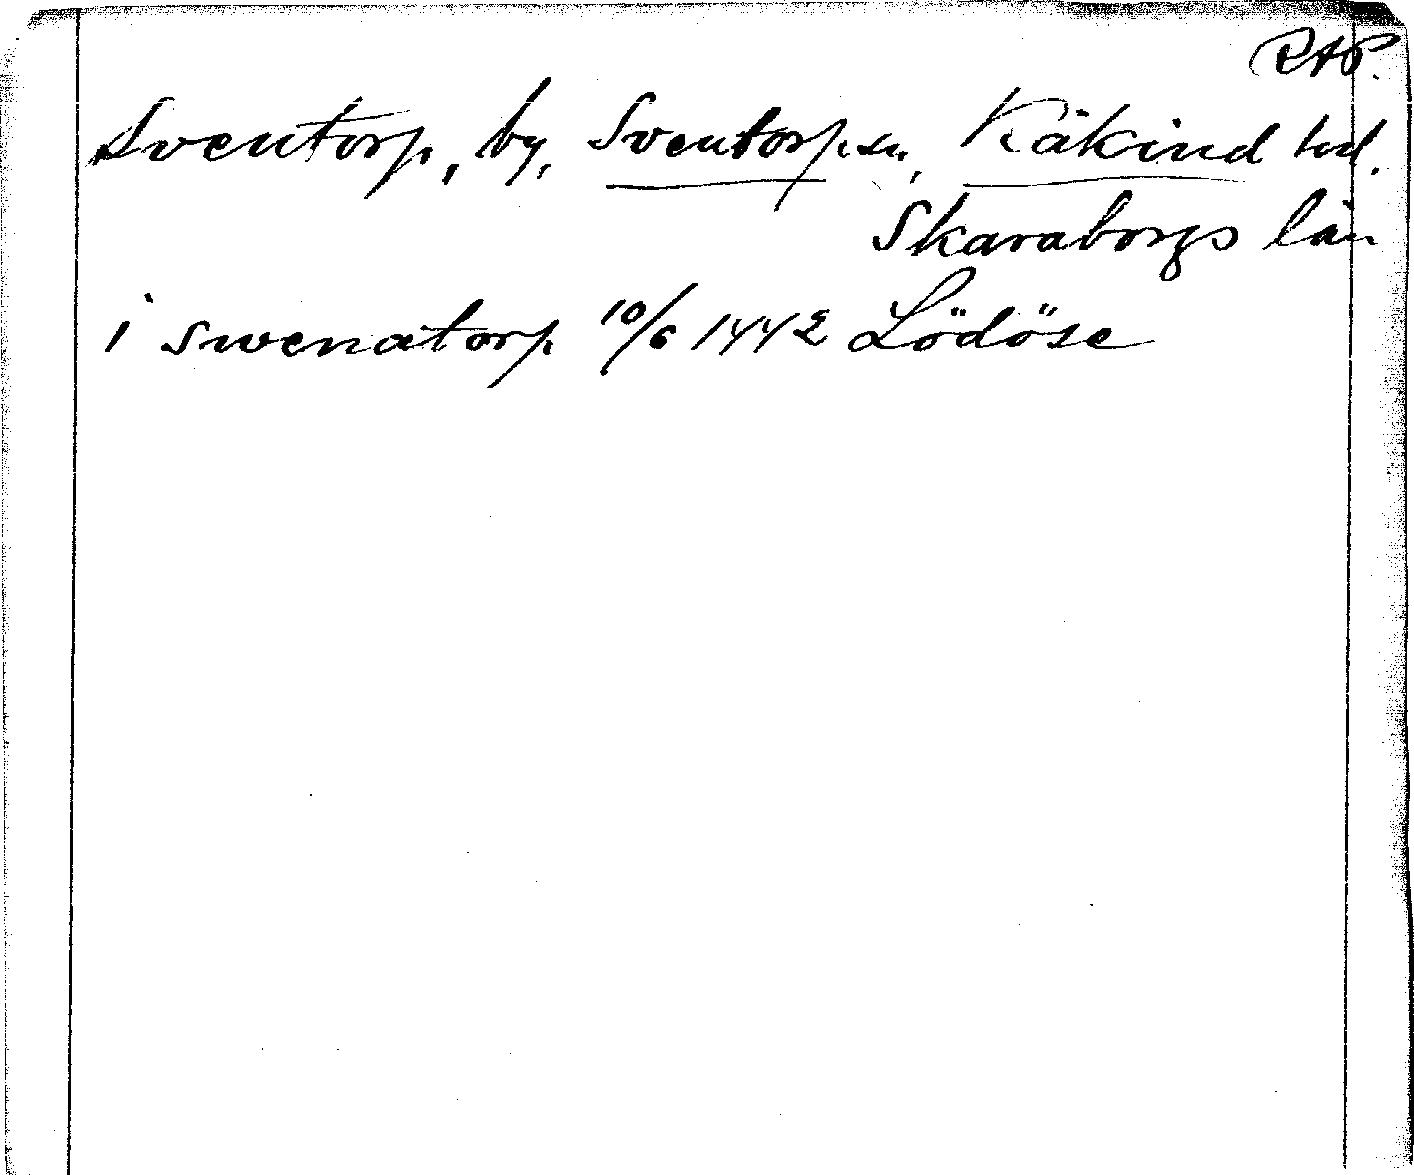 RAP.
Sventorp, by, Sventorp sn, Käkind hd.
Skaraborgs län
i swenatorp 10/6 1442 Lödöse